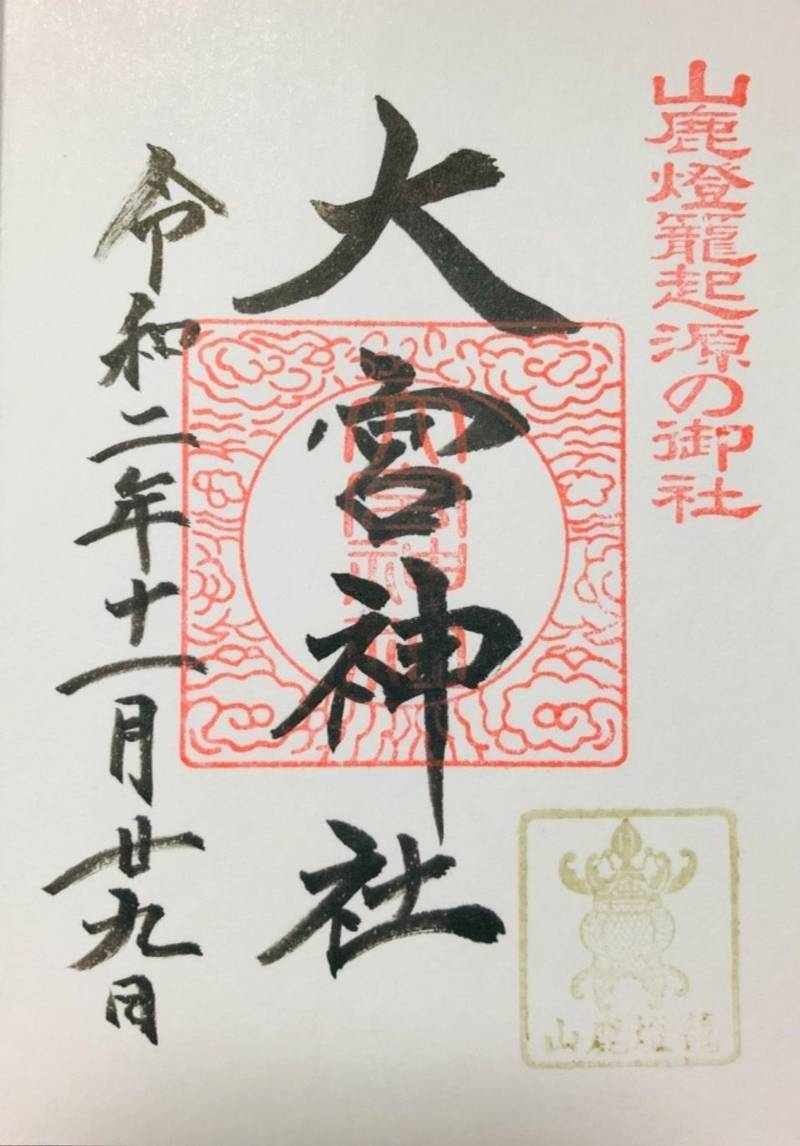 山鹿燈籠起源の御社
大宮神社
令和二年十一月廿九日
大宮神社
山鹿燈籠